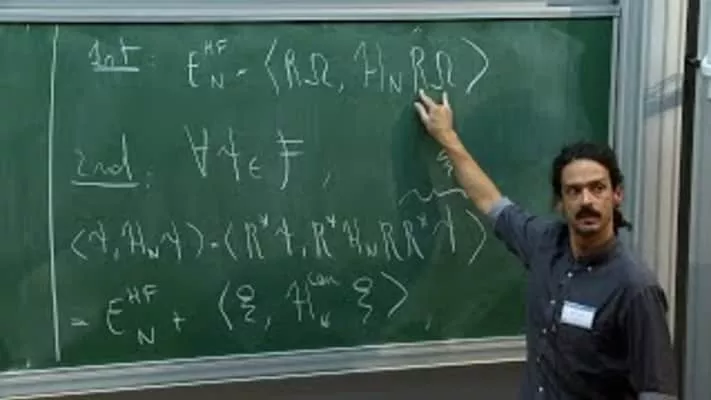 1st : E_N^HF = ⟨RΩ, H_N RΩ⟩
2nd : ∀ψ ∈ F,
ξ
⟨ψ, H_N ψ⟩ = ⟨R*ψ, R* H_N R R*ψ⟩
= E_N^HF + ⟨ξ, H^can ξ⟩,